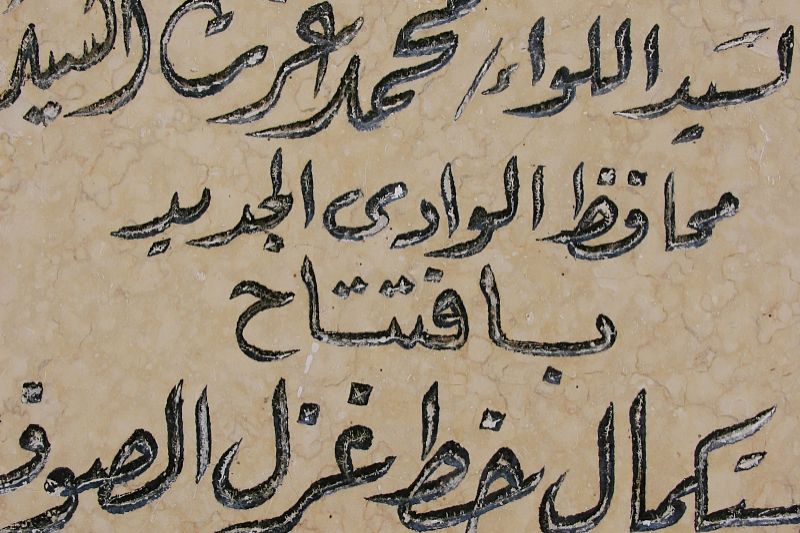 لسيد اللواء / محمد عزت السيد
محافظ الوادى الجديد
بافتتاح
ستكمال خط غزل الصوف